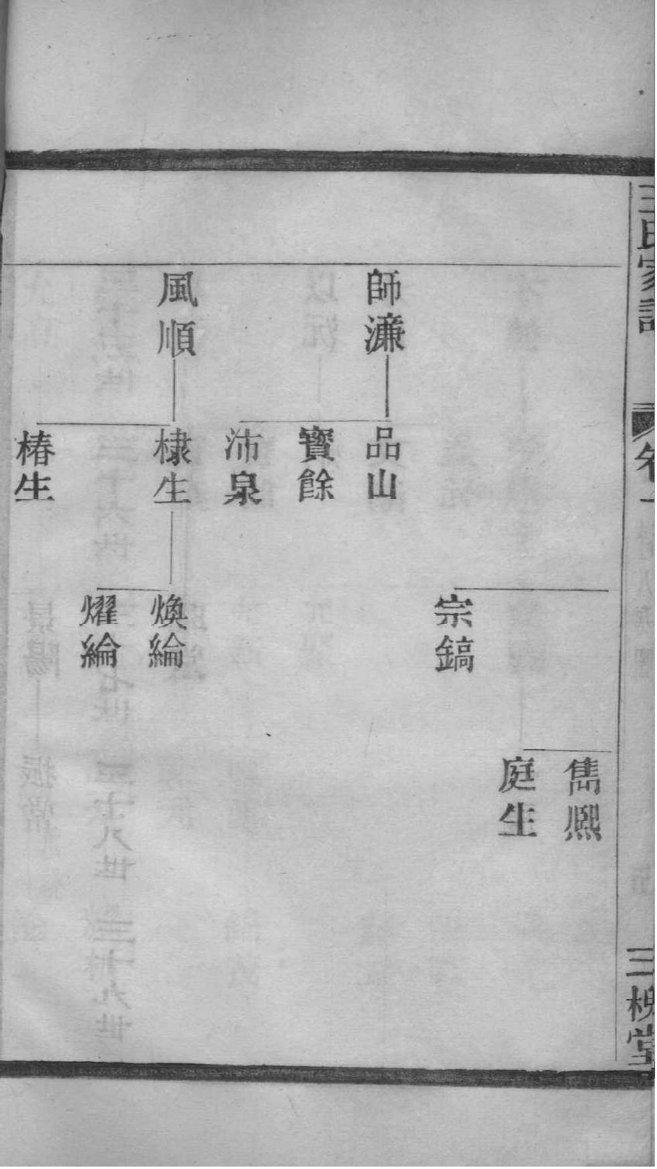 王氏家譜
卷一
三槐堂
師濂
風順
品山
寶餘
沛泉
棣生
椿生
宗鎬
煥綸
燿綸
雋熙
庭生